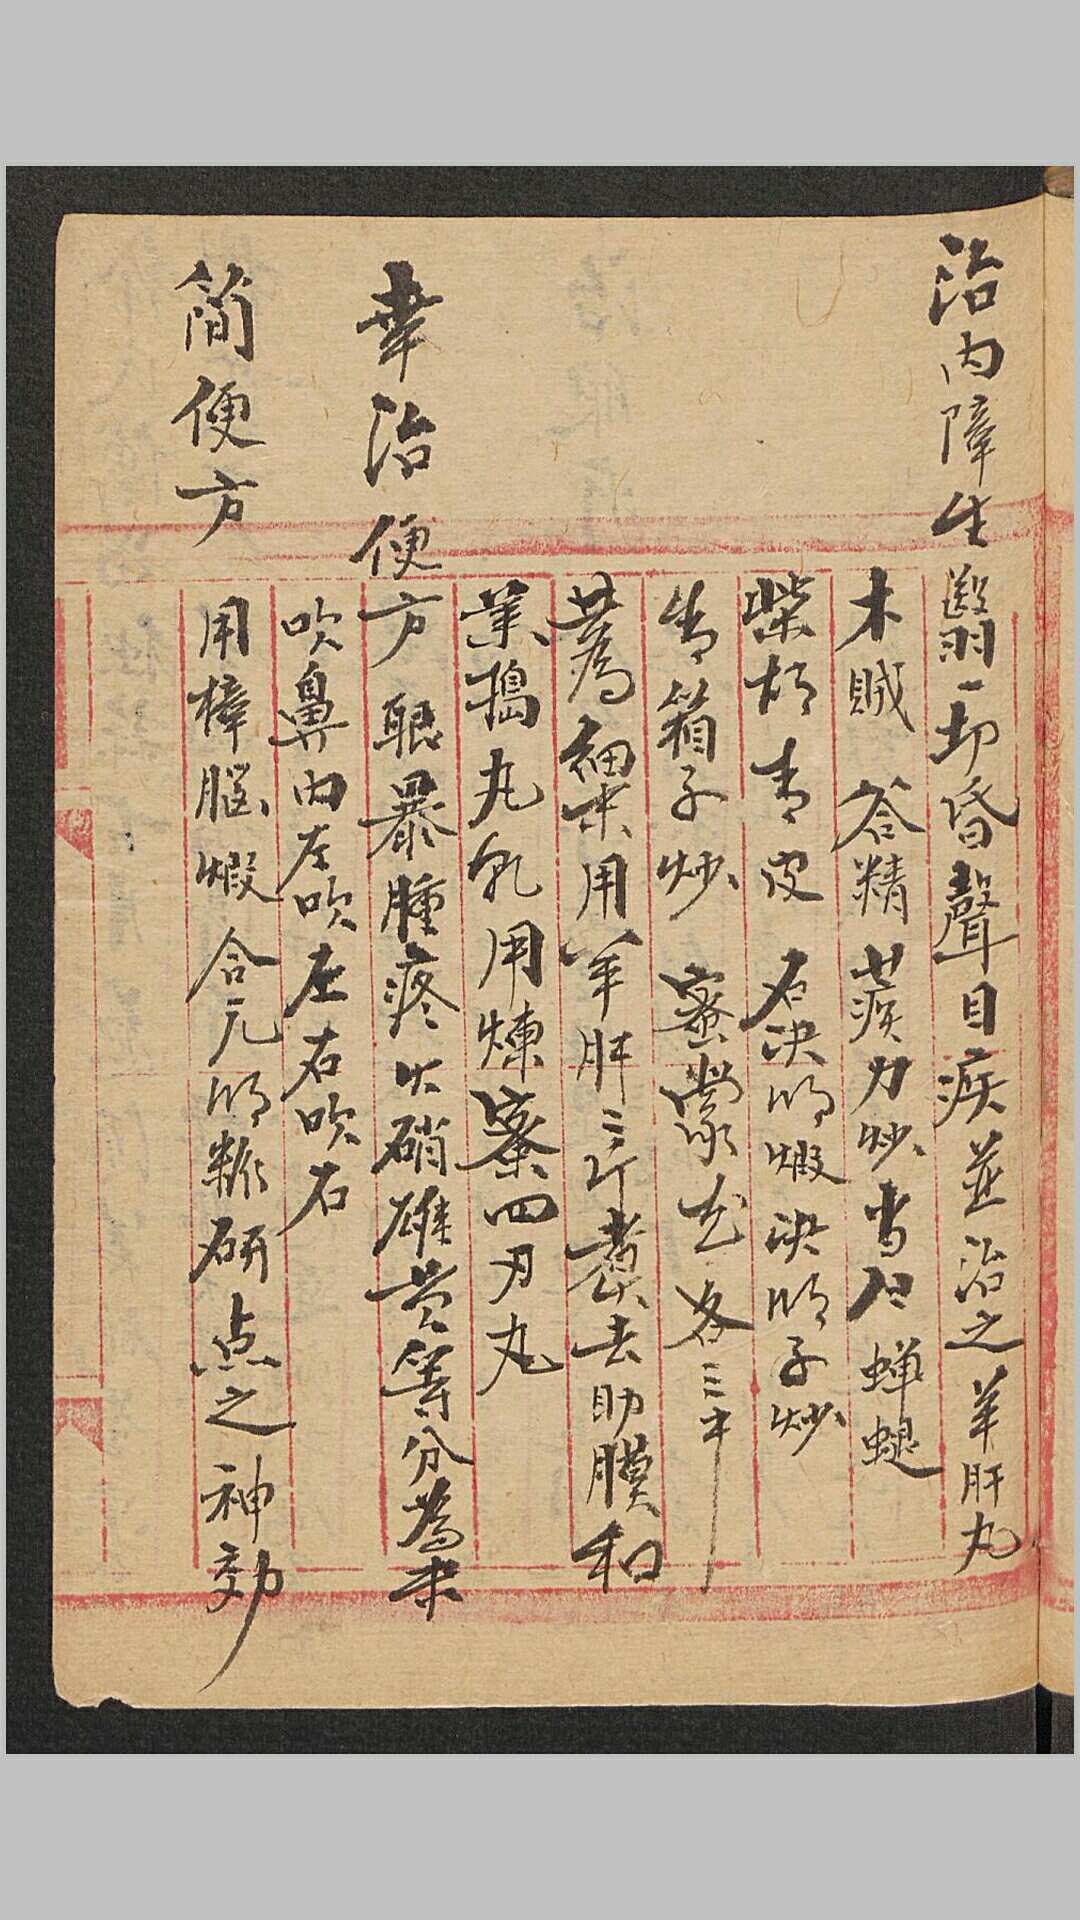 治内障生翳一切昏瞽目疾並治之羊肝丸
木賊 谷精 力炒 当归 蝉蜕
柴胡 青皮 石决明煅 决明子炒
青箱子炒 蜜蒙花 各三
為細末用羊肝三 煮去 膜和
藥搗丸 用煉蜜四 丸
治便方 眼暴腫疼火硝雄黄等分為末
吹鼻内左吹左右吹右
简便方 用樟脳煅合元明粉研点之神効